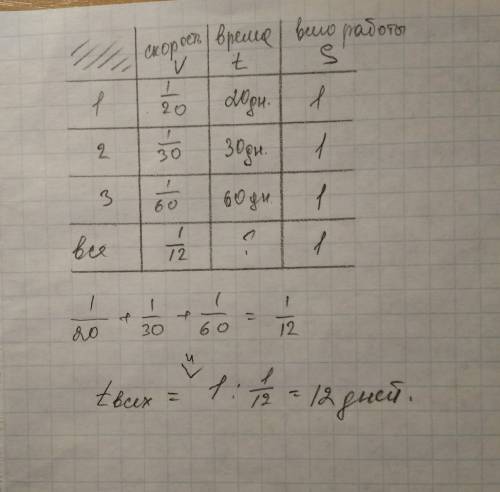 скорость V время t вело работы S
1 1/20 20дн. 1
2 1/30 30дн. 1
3 1/60 60дн. 1
все 1/12 ? 1
1/20 + 1/30 + 1/60 = 1/12
tвсех = 1 : 1/12 = 12 дней.